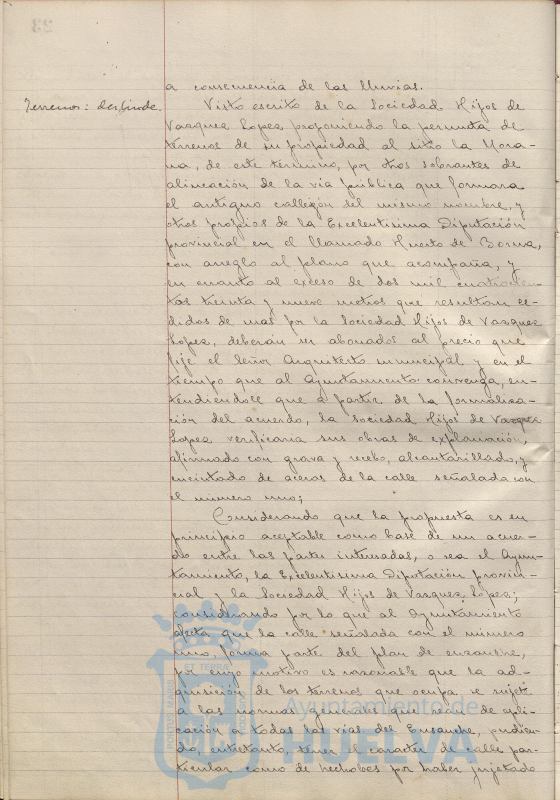 a consecuencia de las lluvias.
Terrenos: deslinde.
Visto escrito de la Sociedad Hijos de
Vazquez Lopez, proponiendo la permuta de
terrenos de su propiedad al sitio la Mora-
na, de este termino, por otros sobrantes de
alineación de la via pública que formara
el antiguo callejón del mismo nombre, y
otros propios de la Excelentisima Diputación
provincial en el llamado Huerto de Borna,
con arreglo al plano que acompaña, y
en cuanto al exceso de dos mil cuatrocien-
tos treinta y nueve metros que resultan ce-
didos de mas por la Sociedad Hijos de Vazquez
Lopez, deberán ser abonados al precio que
fije el Señor Arquitecto municipal y en el
tiempo que al Ayuntamiento convenga, en-
tendiendose que a partir de la formaliza-
ción del acuerdo, la Sociedad Hijos de Vazquez
Lopez verificaria sus obras de explanación,
afirmado con grava y recebo, alcantarillado, y
encintado de aceras de la calle señalada con
el número uno;
Considerando que la propuesta es en
principio aceptable como base de un acuer-
do entre las partes interesadas, o sea el Ayun-
tamiento, la Excelentisima Diputación provin-
cial y la Sociedad Hijos de Vazquez Lopez;
considerando por lo que al Ayuntamiento
afecta que la calle señalada con el número
uno, forma parte del plan de ensanche,
por cuyo motivo es razonable que la ad-
quisición de los terrenos que ocupa, se sujete
a las normas generales que sean de apli-
cación a todas las vias del Ensanche, pudien-
do, entretanto, tener el caracter de calle par-
ticular como de hecho es por haber sujetado
ET TERRÆ
Ayuntamiento de
HUELVA